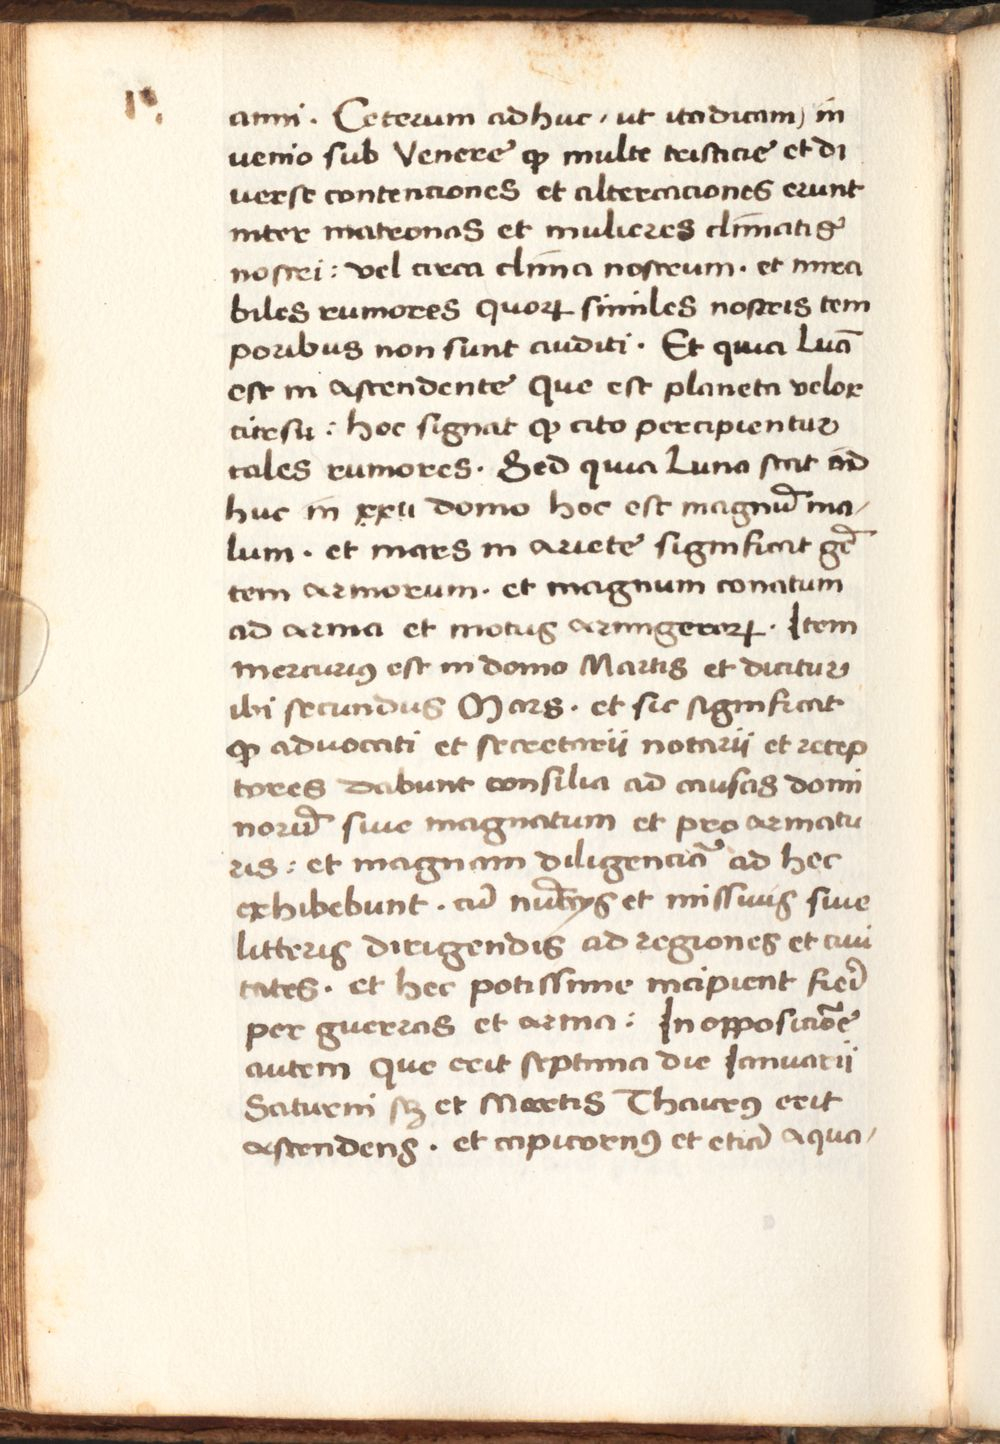 anni. Ceterum adhuc, ut itadicam) in
uenio sub Venere ꝙ multe tristicie et di
uerse contenciones et altercaciones erunt
inter matronas et mulieres climatis
nostri: vel circa clima nostrum. et mira
biles rumores quorꝝ similes nostris tem
poribus non sunt auditi. Et quia Luā
est in ascendente Que est planeta velox
cursu: hoc signat ꝙ cito percipientur
tales rumores. Sed quia Luna stat ad
huc in xxii domo hoc est magnū ma/
lum. et mars in ariete significat gē
tem armorum. et magnum conatum
ad arma et motus armigerorꝝ. Item
mercuriꝰ est in domo Martis et dicitur
ibi secundus Mars. et sic significat
ꝙ advocati et secretarii notarii et recep
tores dabunt consilia ad causas domi
norū siue magnatum et pro armatu
ris: et magnam diligenciā ad hec
exhibebunt. cū nūcys et missiuis siue
litteris dirigendis ad regiones et ciui
tates. et hec potissime incipient fieri
per guerras et arma: In opposiciōe
autem Que erit septima die Ianuarii
Saturni sꝫ et Martis Thaurꝰ erit
ascendens. et capicornꝰ et etiā aqua/